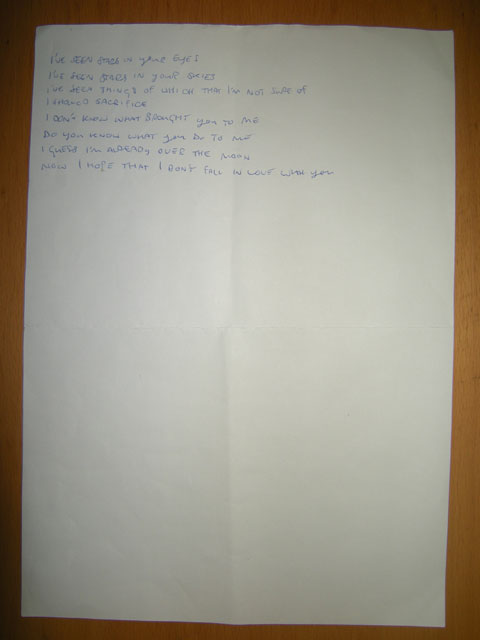 I've seen stars in your eyes
I've seen stars in your skies
I've seen things of which that I'm not sure of
I should sacrifice
I don't know what brought you to me
Do you know what you do to me
I guess I'm already over the moon
Now I hope that I don't fall in love with you